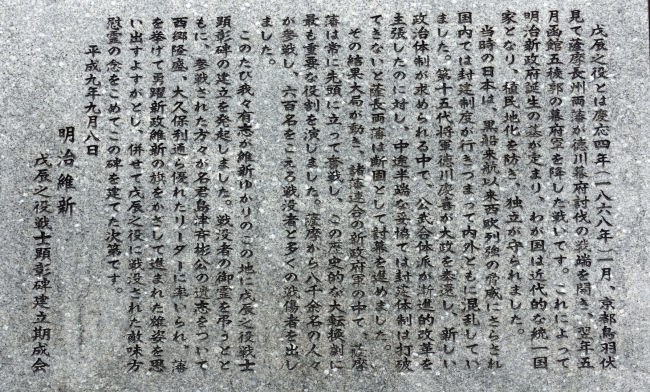 戊辰之役とは慶応四年（一八六八年）一月、京都鳥羽伏
見で薩摩長州両藩が徳川幕府討伐の戦端を開き、翌年五
月函館五稜郭の幕府軍を降した戦いです。これによって
明治新政府誕生の基が定まり、わが国は近代的な統一国
家となり、植民地化を防ぎ、独立が守られました。
当時の日本は、黒船来航以来西欧列強の脅威にさらされ
国内では封建制度が行きづまって内外ともに混乱してい
ました。第十五代将軍徳川慶喜が大政を奉還し、新しい
政治体制が求められる中で、公武合体派が漸進的改革を
主張したのに対し、中途半端な妥協では封建体制は打破
できないと薩長両藩は断固として討幕を進めました。
その結果大局が動き、諸藩連合の新政府軍の中で、薩摩
藩は常に先頭に立って奮戦し、この歴史的な大転換劇に
最も重要な役割を演じました。薩摩から八千余名の人々
が参戦し、六百名をこえる戦没者と多くの戦傷者を出し
ました。
このたび我々有志が維新ゆかりのこの地に戊辰之役戦士
顕彰碑の建立を発起しました。戦没者の御霊を弔うとと
もに、参戦された方々が名君島津斉彬公の遺志をついで
西郷隆盛、大久保利通ら優れたリーダーに率いられ、藩
を挙げて勇躍新政維新の旗をかざして進まれた雄姿を思
い出すよすがとし、併せて戊辰之役に戦没された敵味方
慰霊の念をこめてこの碑を建てた次第です。
平成九年九月八日
明治維新
戊辰之役戦士顕彰碑建立期成会